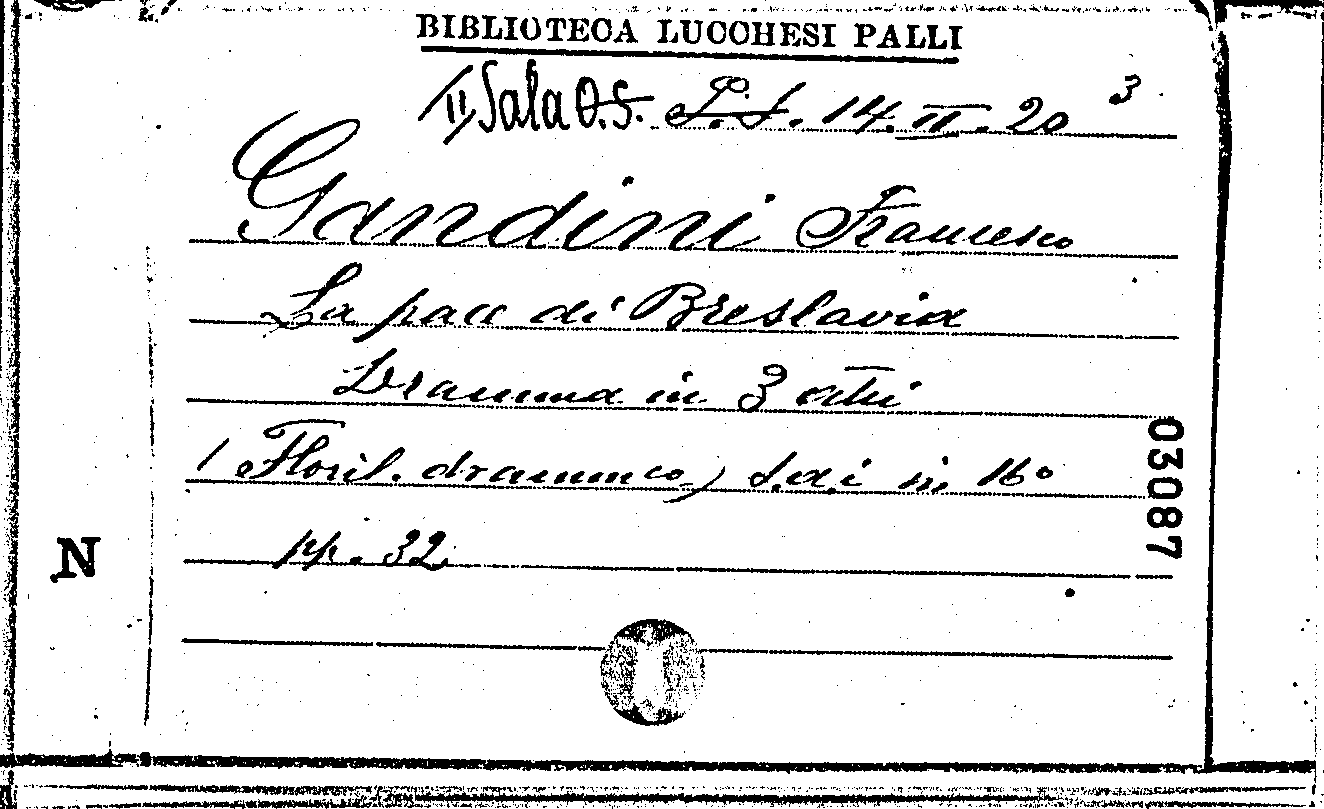 BIBLIOTECA LUCCHESI PALLI
II, Sala O.S. L.S. 14. II. 20 3
Gandini Francesco
La pace di Breslavia
Dramma in 3 atti
(Floril. drammco) s.a.i in 16°
pp. 32
N
03087